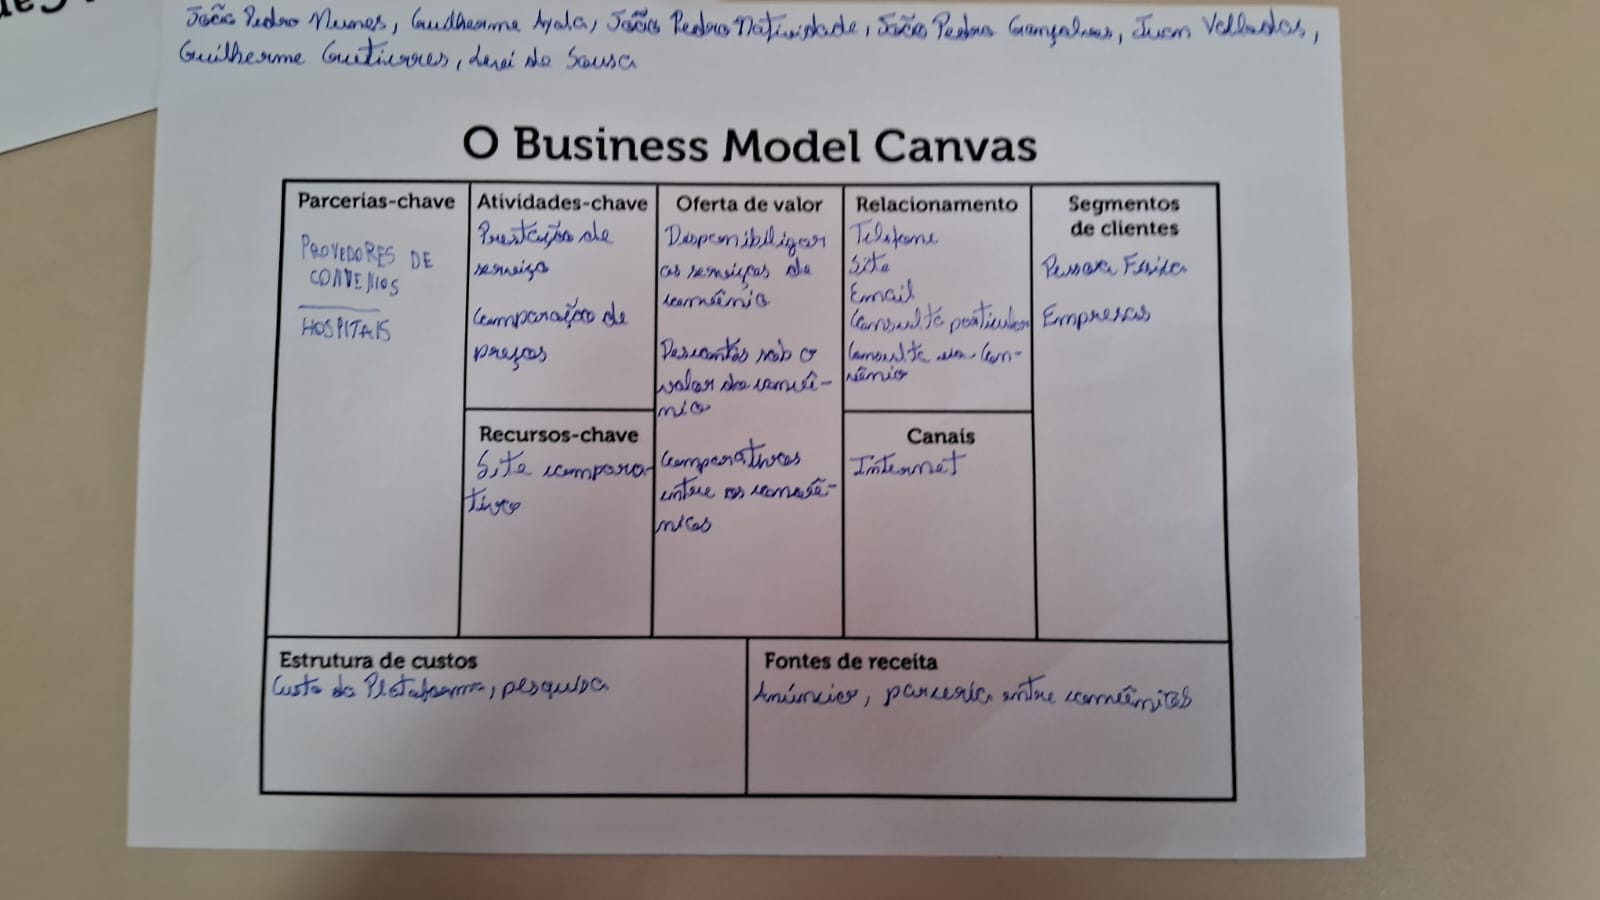 João Pedro Nunes, Guilherme Ayala, João Pedro Natividade, João Pedro Gonçalves, Juan
Guilherme Gutierres, de Sousa
O Business Model Canvas
Parcerias-chave
PROVEDORES DE
CONVENIOS
HOSPITAIS
Atividades-chave
Prestação de
serviço
Comparação de
preços
Recursos-chave
Site compara-
tivo
Oferta de valor
Disponibilizar
os serviços de
convênio
Descontos sob o
valor do convê-
nio
Comparativos
entre os convê-
nios
Relacionamento
Telefone
Site
Email
Consulta particular
Consulta via Con-
vênio
Canais
Internet
Segmentos
de clientes
Pessoa Física
Empresas
Estrutura de custos
Custo da Plataforma, pesquisa
Fontes de receita
Anúncios, parceria entre convênios